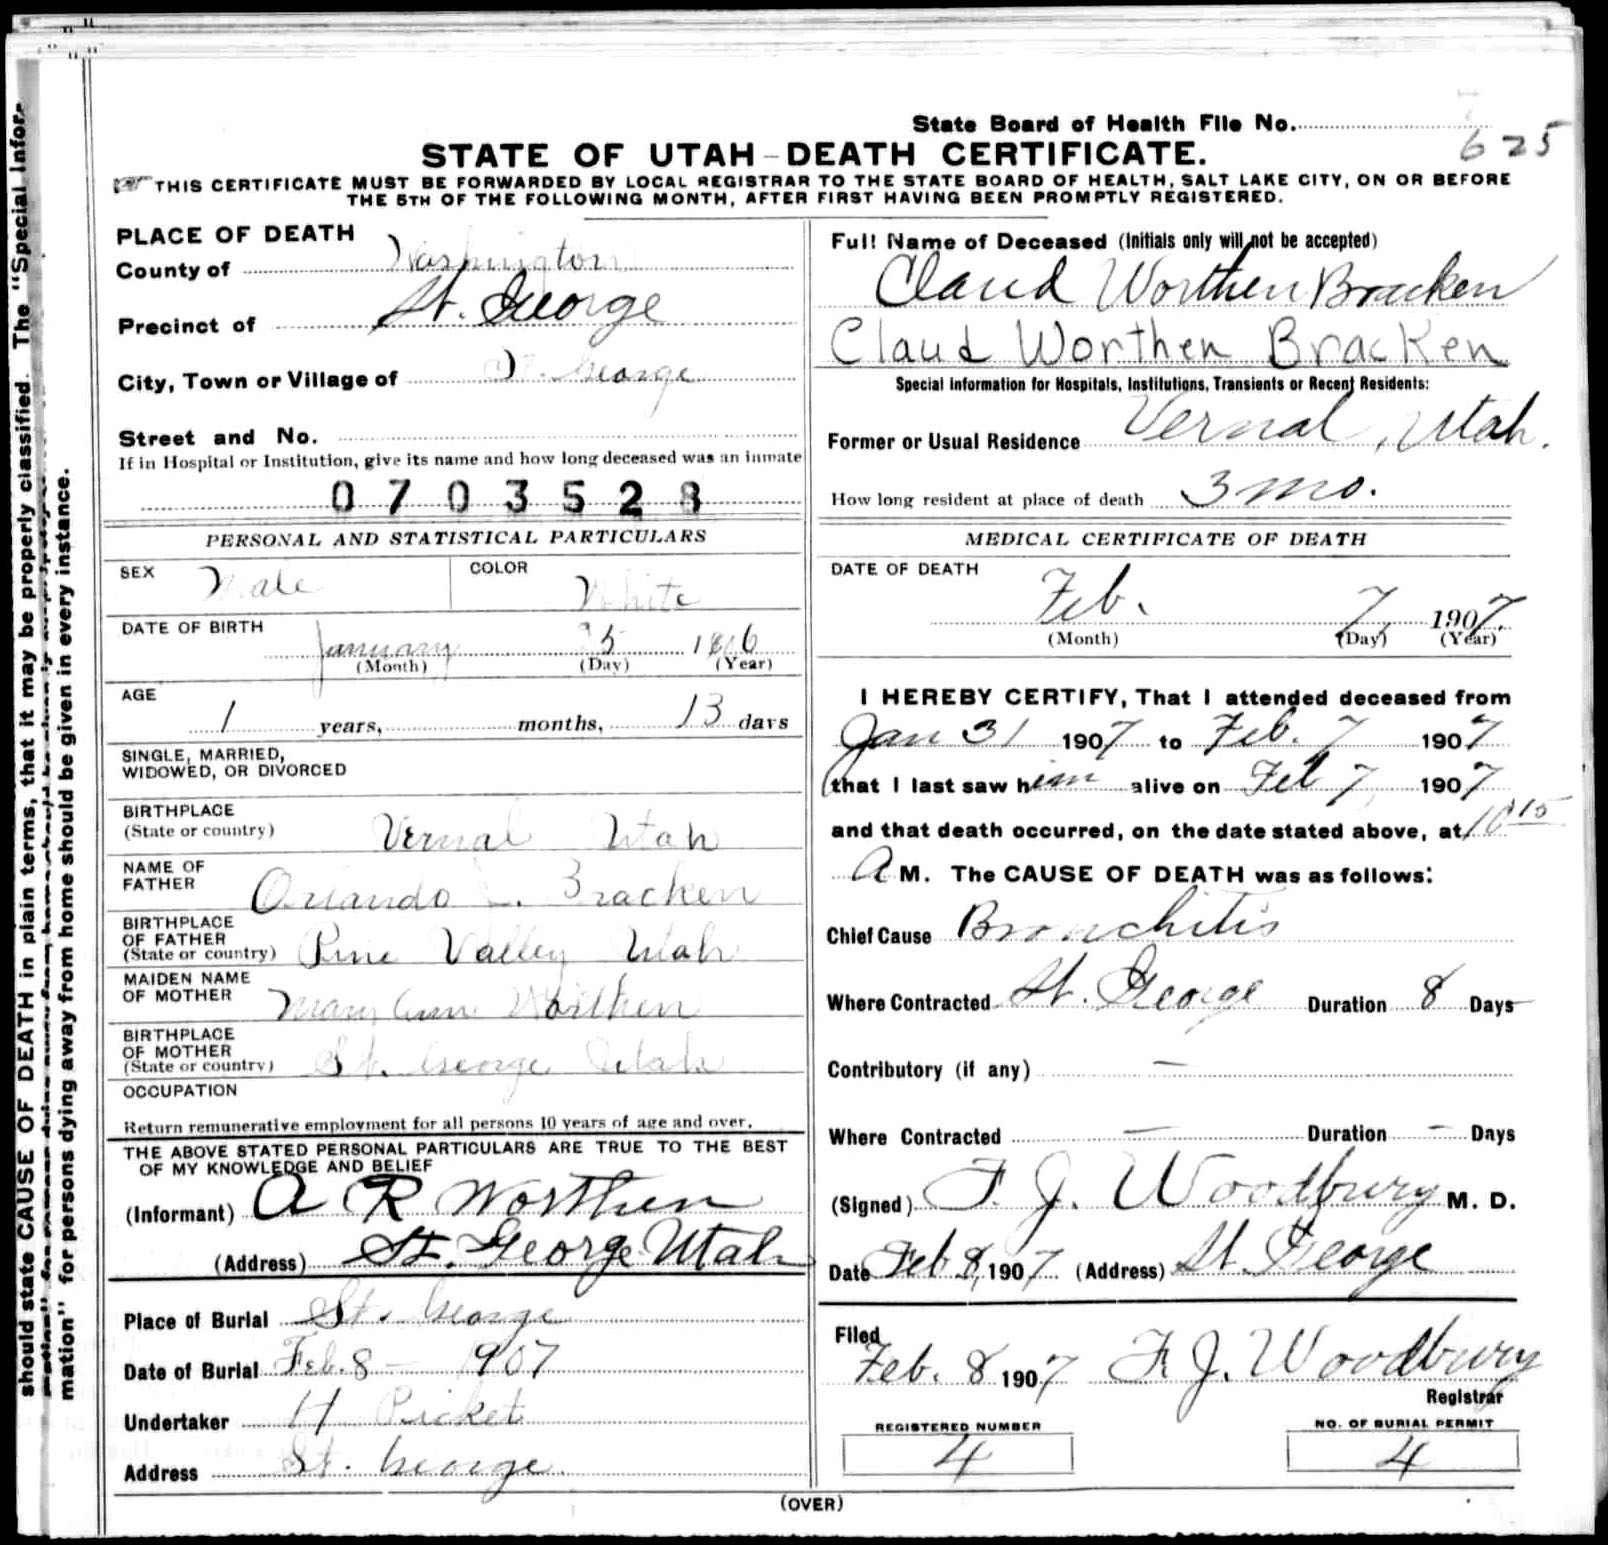 State Board of Health File No.
625
STATE OF UTAH—DEATH CERTIFICATE.
☞ THIS CERTIFICATE MUST BE FORWARDED BY LOCAL REGISTRAR TO THE STATE BOARD OF HEALTH, SALT LAKE CITY, ON OR BEFORE
THE 5TH OF THE FOLLOWING MONTH, AFTER FIRST HAVING BEEN PROMPTLY REGISTERED.
PLACE OF DEATH
County of Washington
Precinct of St. George
City, Town or Village of St. George
Street and No.
If in Hospital or Institution, give its name and how long deceased was an inmate
0703528
PERSONAL AND STATISTICAL PARTICULARS
SEX Male COLOR White
DATE OF BIRTH
January 25 1906
(Month) (Day) (Year)
AGE
1 years, months, 13 days
SINGLE, MARRIED,
WIDOWED, OR DIVORCED
BIRTHPLACE
(State or country) Vernal Utah
NAME OF
FATHER Orlando Bracken
BIRTHPLACE
OF FATHER
(State or country) Pine Valley Utah
MAIDEN NAME
OF MOTHER Mary Ann Worthen
BIRTHPLACE
OF MOTHER
(State or country) St. George Utah
OCCUPATION
Return remunerative employment for all persons 10 years of age and over.
THE ABOVE STATED PERSONAL PARTICULARS ARE TRUE TO THE BEST
OF MY KNOWLEDGE AND BELIEF
(Informant) A R Worthen
(Address) St. George Utah
Place of Burial St. George
Date of Burial Feb. 8 - 1907
Undertaker H Picket
Address St. George
Full Name of Deceased (Initials only will not be accepted)
Claud Worthen Bracken
Claud Worthen Bracken
Special Information for Hospitals, Institutions, Transients or Recent Residents:
Former or Usual Residence Vernal, Utah.
How long resident at place of death 3 mo.
MEDICAL CERTIFICATE OF DEATH
DATE OF DEATH
Feb. 7, 1907.
(Month) (Day) (Year)
I HEREBY CERTIFY, That I attended deceased from
Jan 31 1907 to Feb. 7 1907
that I last saw him alive on Feb 7, 1907
and that death occurred, on the date stated above, at 10 15
A M. The CAUSE OF DEATH was as follows:
Chief Cause Bronchitis
Where Contracted St. George Duration 8 Days
Contributory (if any) —
Where Contracted — Duration - Days
(Signed) F. J. Woodbury M. D.
Date Feb 8, 1907 (Address) St. George
Filed
Feb. 8 1907 F. J. Woodbury
Registrar
REGISTERED NUMBER
4
NO. OF BURIAL PERMIT
4
(OVER)
should state CAUSE OF DEATH in plain terms, that it may be properly classified. The "Special Infor-
mation" for persons dying away from home should be given in every instance.